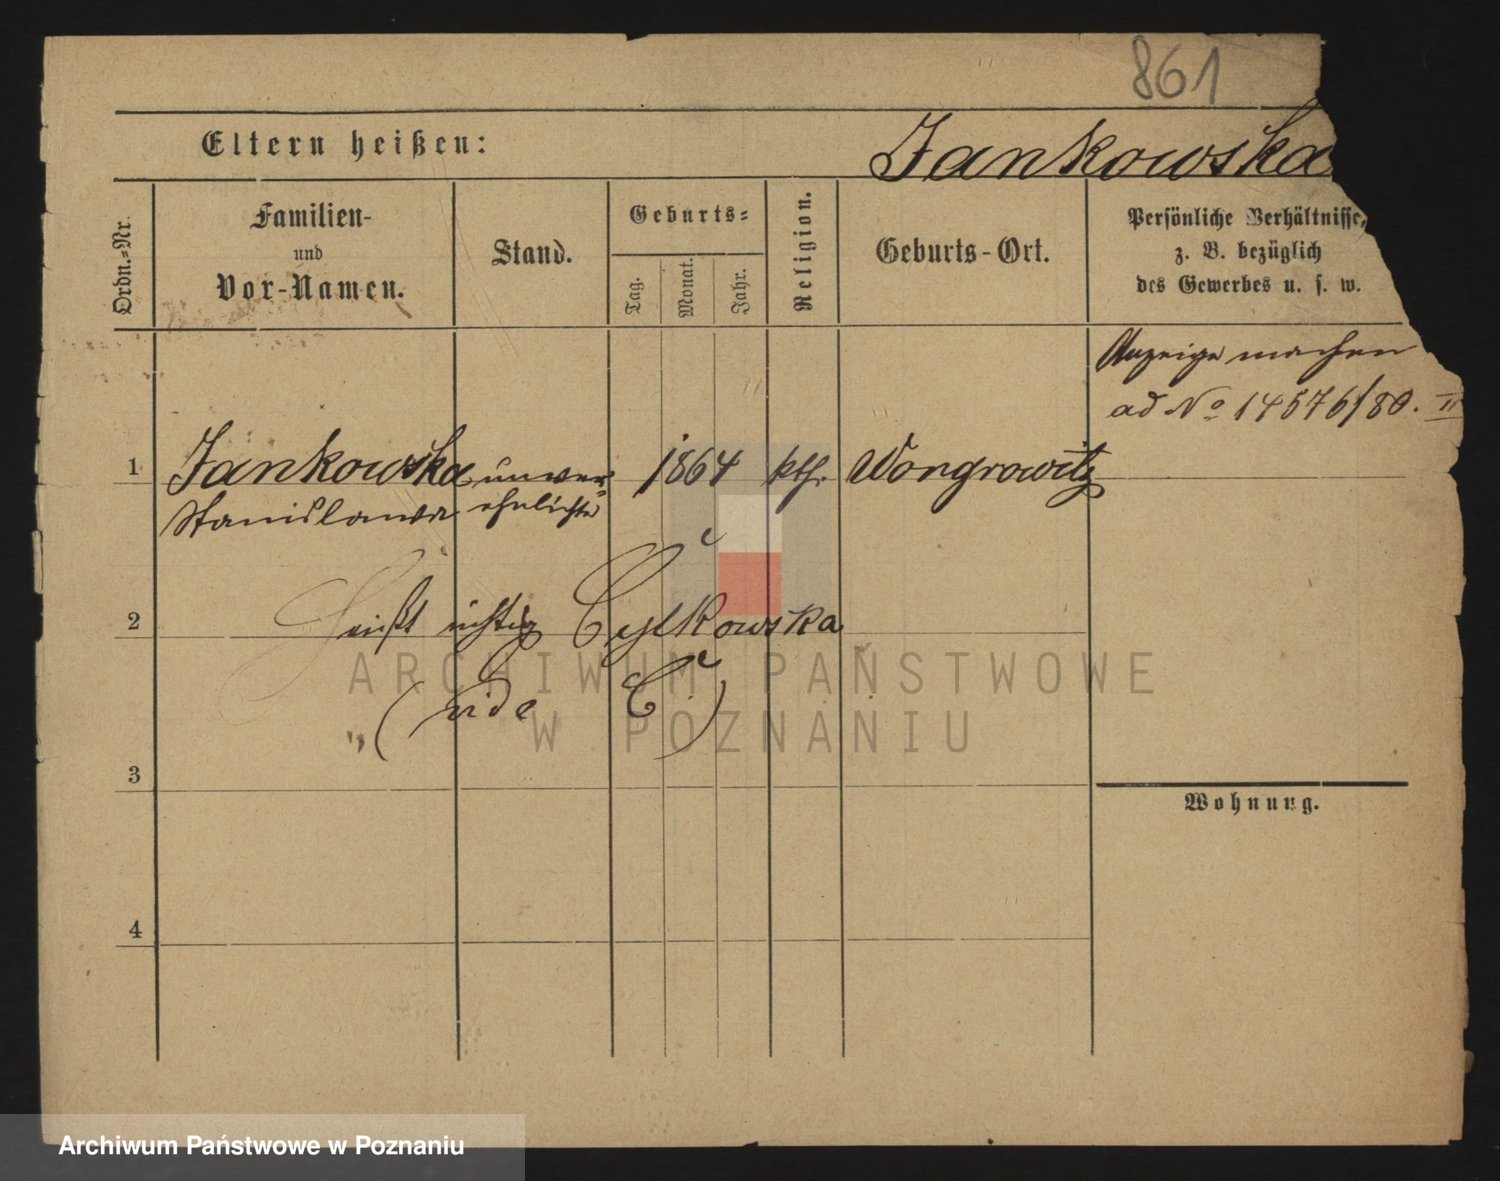 861
Eltern heißen:
Jankowska
Ordn.-Nr.
Familien-
und
Vor-Namen.
Stand.
Geburts-
Tag.
Monat.
Jahr.
Religion.
Geburts-Ort.
Persönliche Verhältnisse,
z. B. bezüglich
des Gewerbes u. s. w.
Anzeige machen
ad No 14576/80. II
1 Jankowska unver= 1864 kth. Wongrowitz
Stanislawa ehelichte
2 heißt richtig Cylkowska
(vide C)
ARCHIWUM PAŃSTWOWE
W POZNANIU
3
Wohnung.
4
Archiwum Państwowe w Poznaniu